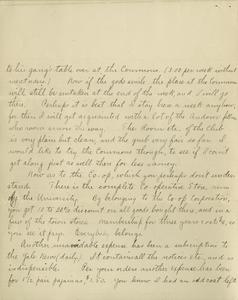 to his gang's table over at the Commons (3.00 per week without
meat today.) Now if the gods smile the place at the Commons
will be untaken at the end of the week, and I will go
there. Perhaps it is best that I stay here a week anyhow,
for then I will get acquainted with a lot of the Andover fellows
who room across the way. The room etc. of the Club
is very plain but clean, and the grub very fair so far. I
would like to try the Commons though, to see if I can't
get along just as well there for less money.
Now as to the Co-op, which you perhaps don't under-
stand. There is the complete Co-operative Store, run
by the University. By belonging to the Co-op Corporation,
you get 10 to 20% discount on all goods bought there, and in a
few of the town stores. Membership for three years costs
you see it pays. Everybody belongs.
Another unavoidable expense has been a subscription to
the Yale News (daily). It contains all the notices etc., and is
indispensible. Per your orders another expense has been
for 1 pair pajamas You know I had an odd